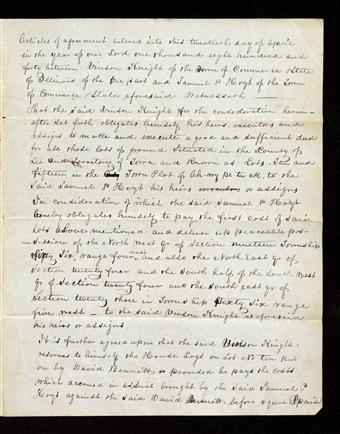 Articles of agreement entered into this twentieth day of April
in the year of our Lord one thousand eight hundred and
forty between Vinson Knight of the Town of Commerce & State
of Illinois of the one part and Samuel P Hoyt of the Town
of Commerce & State aforesaid Witnesseth
That the said Vinson Knight for the consideration herein-
after set forth obligates himself his heirs, executors and
assigns to make and execute a good and sufficient deed
for all those lots of ground Situated in the County of
Lee and Territory of Iowa and known as Lots Ten and
fifteen in the Town Plot of to the
Said Samuel P Hoyt his heirs executors or assigns
In consideration of which the said Samuel P Hoyt
hereby obligates himself to pay the first cost of said
lots above mentioned and deliver up peaceable pos-
-session of the North West qr of Section nineteen Township
Sixty Six, range four west and also the North East qr of
Section twenty four and the South half of the South West
qr of Section twenty four and the South east qr of
Section twenty three in Township Sixty Six range
five west - to the said Vinson Knight as aforesaid
his heirs or assigns.
It is further agreed upon that the said Vinson Knight
reserves to himself the House Logs on Lot No ten put
on by David Bennett, provided he pays the costs
which accrued in a suit brought by the said Samuel P
Hoyt against the said David Bennett before Squire